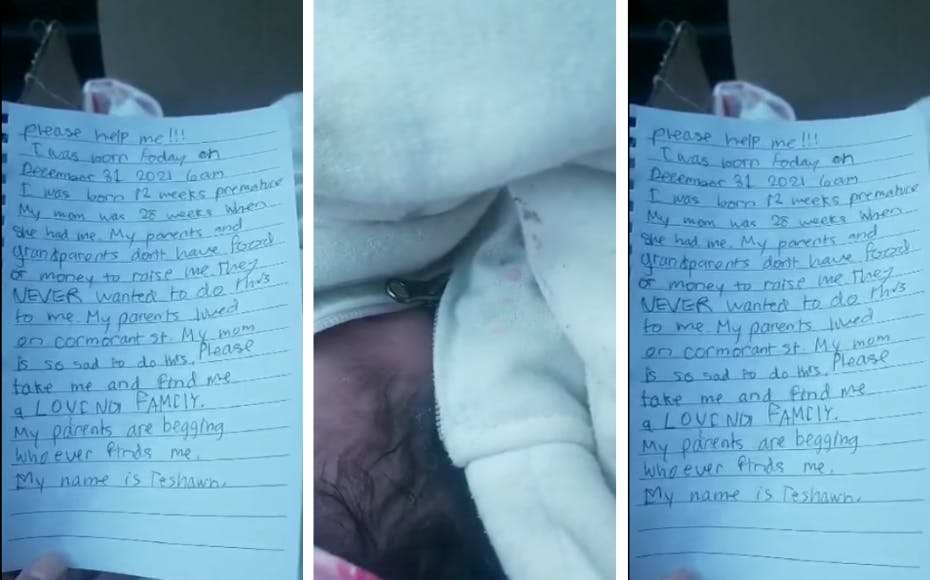 please help me!!!
I was born Today on
December 31 2021 6am
I was born 12 weeks premature
My mom was 28 weeks when
she had me. My parents and
grandparents don't have food
or money to raise me. They
NEVER wanted to do this
to me. My parents lived
on cormorant st. My mom
is so sad to do this. Please
take me and find me
a LOVING FAMILY.
My parents are begging
whoever finds me.
My name is Teshawn.
please help me!!!
I was born Today on
December 31 2021 6am
I was born 12 weeks premature
My mom was 28 weeks when
she had me. My parents and
grandparents don't have food
or money to raise me. They
NEVER wanted to do this
to me. My parents lived
on cormorant st. My mom
is so sad to do this. Please
take me and find me
a LOVING FAMILY.
My parents are begging
whoever finds me.
My name is Teshawn.